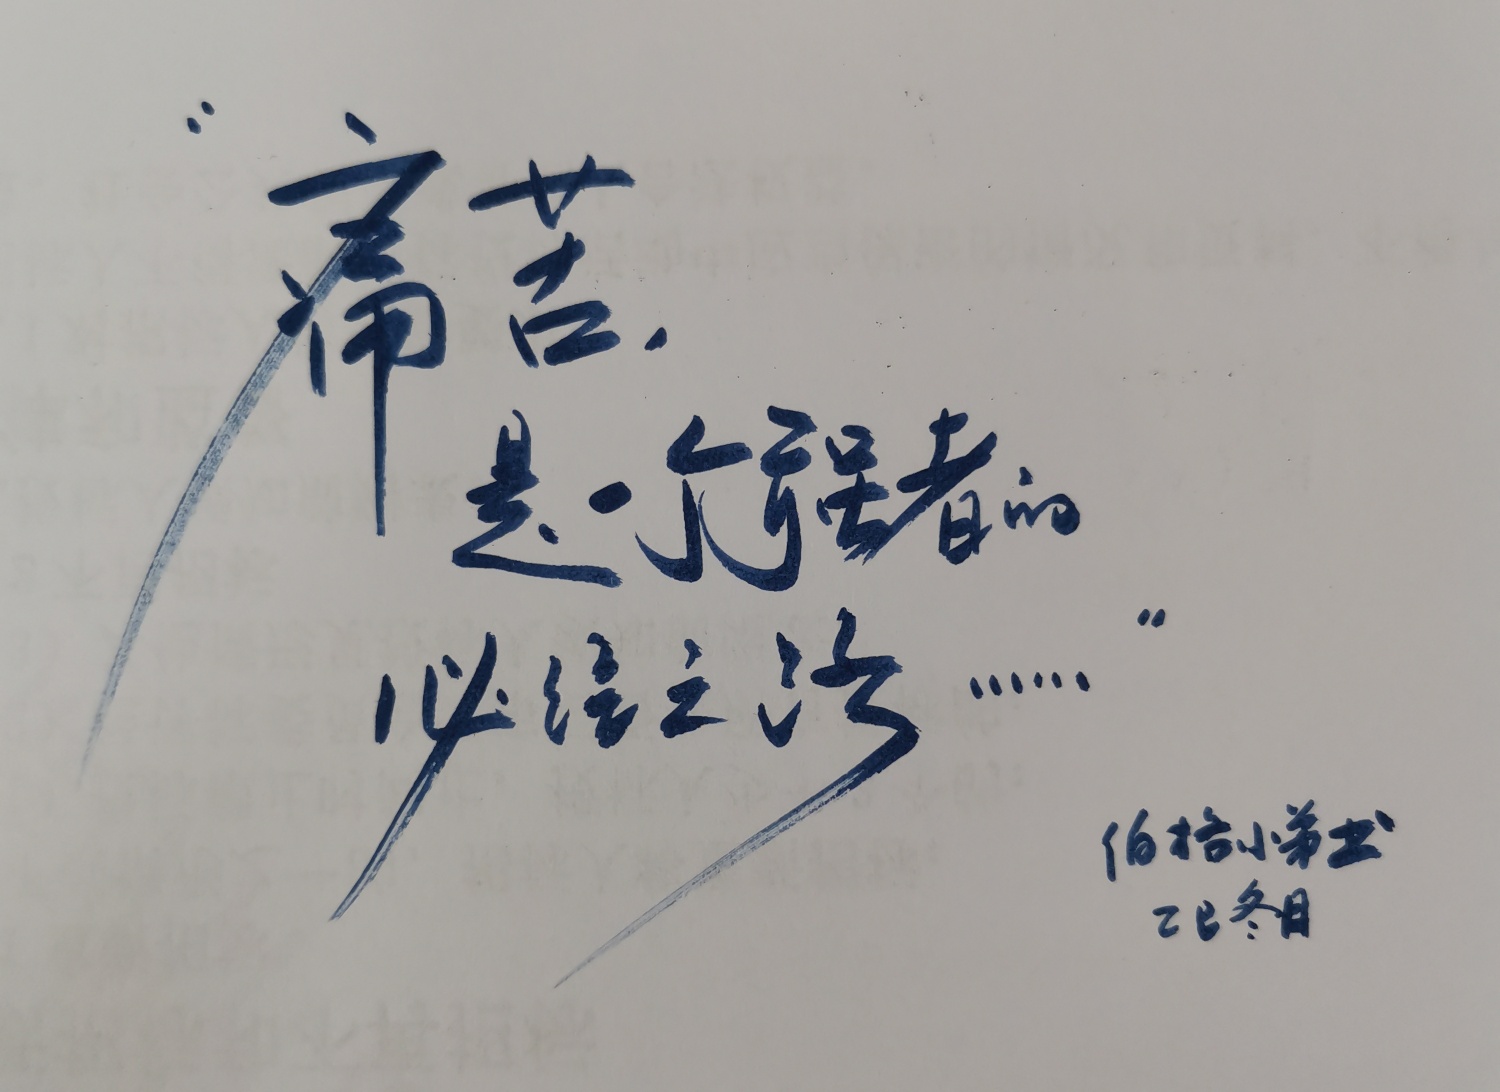 “痛苦，
是一个强者的
必经之路……”
伯格小弟书
乙巳冬月